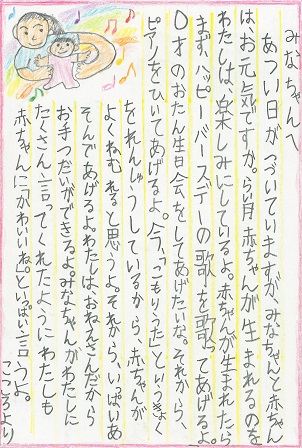 みなちゃんへ
あつい日がつづいていますが、みなちゃんと赤ちゃん
は、お元気ですか。らい月赤ちゃんが生まれるのを
わたしは、楽しみにしているよ。赤ちゃんが生まれたら、
まず、ハッピーバースデーの歌を歌ってあげるよ。
〇才のおたん生日会をしてあげたいな。それから、
ピアノをひいてあげるよ。今、「こもりうた」というきょく
をれんしゅうしているから、赤ちゃんが
よくねむれると思うよ。それから、いっぱいあ
そんであげるよ。わたしは、おねえさんだから
お手つだいができるよ。みなちゃんがわたしに
たくさん言ってくれたようにわたしも
赤ちゃんに「かわいいね」といっぱい言うよ。
こころより